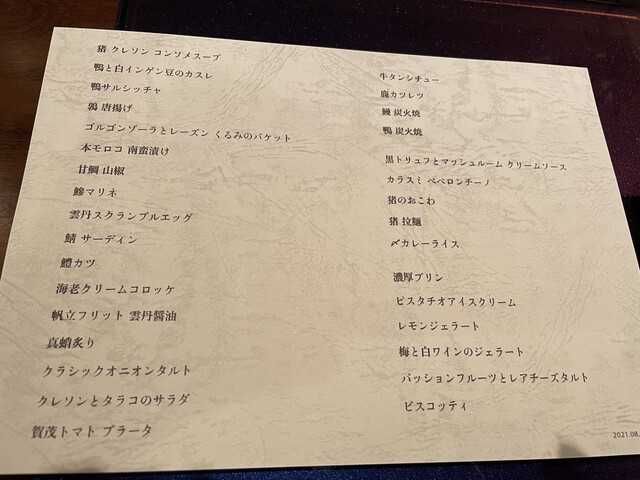 猪 クレソン コンソメスープ
鴨と白インゲン豆のカスレ
鴨サルシッチャ
鶉 唐揚げ
ゴルゴンゾーラとレーズン くるみのバケット
本モロコ 南蛮漬け
甘鯛 山椒
鯵マリネ
雲丹スクランブルエッグ
鯖 サーディン
鱧カツ
海老クリームコロッケ
帆立フリット 雲丹醤油
真蛸炙り
クラシックオニオンタルト
クレソンとタラコのサラダ
賀茂トマト ブラータ
牛タンシチュー
鹿カツレツ
鰻 炭火焼
鴨 炭火焼
黒トリュフとマッシュルーム クリームソース
カラスミ ペペロンチーノ
猪のおこわ
猪 拉麺
〆カレーライス
濃厚プリン
ピスタチオアイスクリーム
レモンジェラート
梅と白ワインのジェラート
パッションフルーツとレアチーズタルト
ビスコッティ
2021.08.